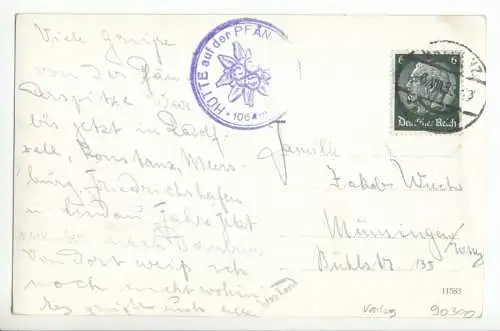 Viele Grüße
von der Pfän
derspitze. War
bis jetzt in Radolf-
zell, Konstanz, Meers-
burg, Friedrichshafen
u Lindau. Fahre jetzt
nach
Von dort weiß ich
noch nicht wohin
Es grüßt euch alle
HÜTTE auf der PFÄN
1064m
6 6
Deutsches Reich
Familie
Jakob
Münsingen
Bühlstr. 135
11583
Verlag 90300